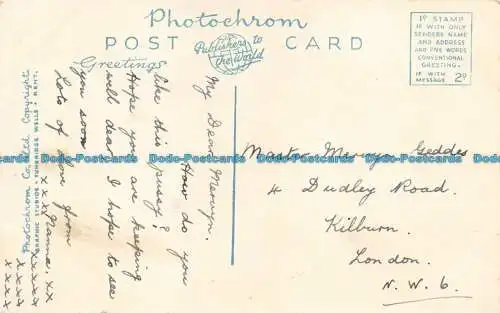 Photochrom
POST CARD
Publishers to
the World
Greetings
1D STAMP
IF WITH ONLY
SENDERS NAME
AND ADDRESS
AND FIVE WORDS
CONVENTIONAL
GREETING.
IF WITH
MESSAGE 2D
Photochrom Co. Limited Copyright
GRAPHIC STUDIOS · TUNBRIDGE WELLS · KENT.
My Dear Mervyn.
How do you
like this pussy?
Hope you are keeping
well dear. I hope to see
you soon
Lots of love from
Nanna. xx
xxxx
xxxxx
xxxx
Master Mervyn Geddes
4 Dudley Road.
Kilburn.
London.
N.W.6.
Dodo-Postcards Dodo-Postcards Dodo-Postcards Dodo-Postcards Dodo-Postcards